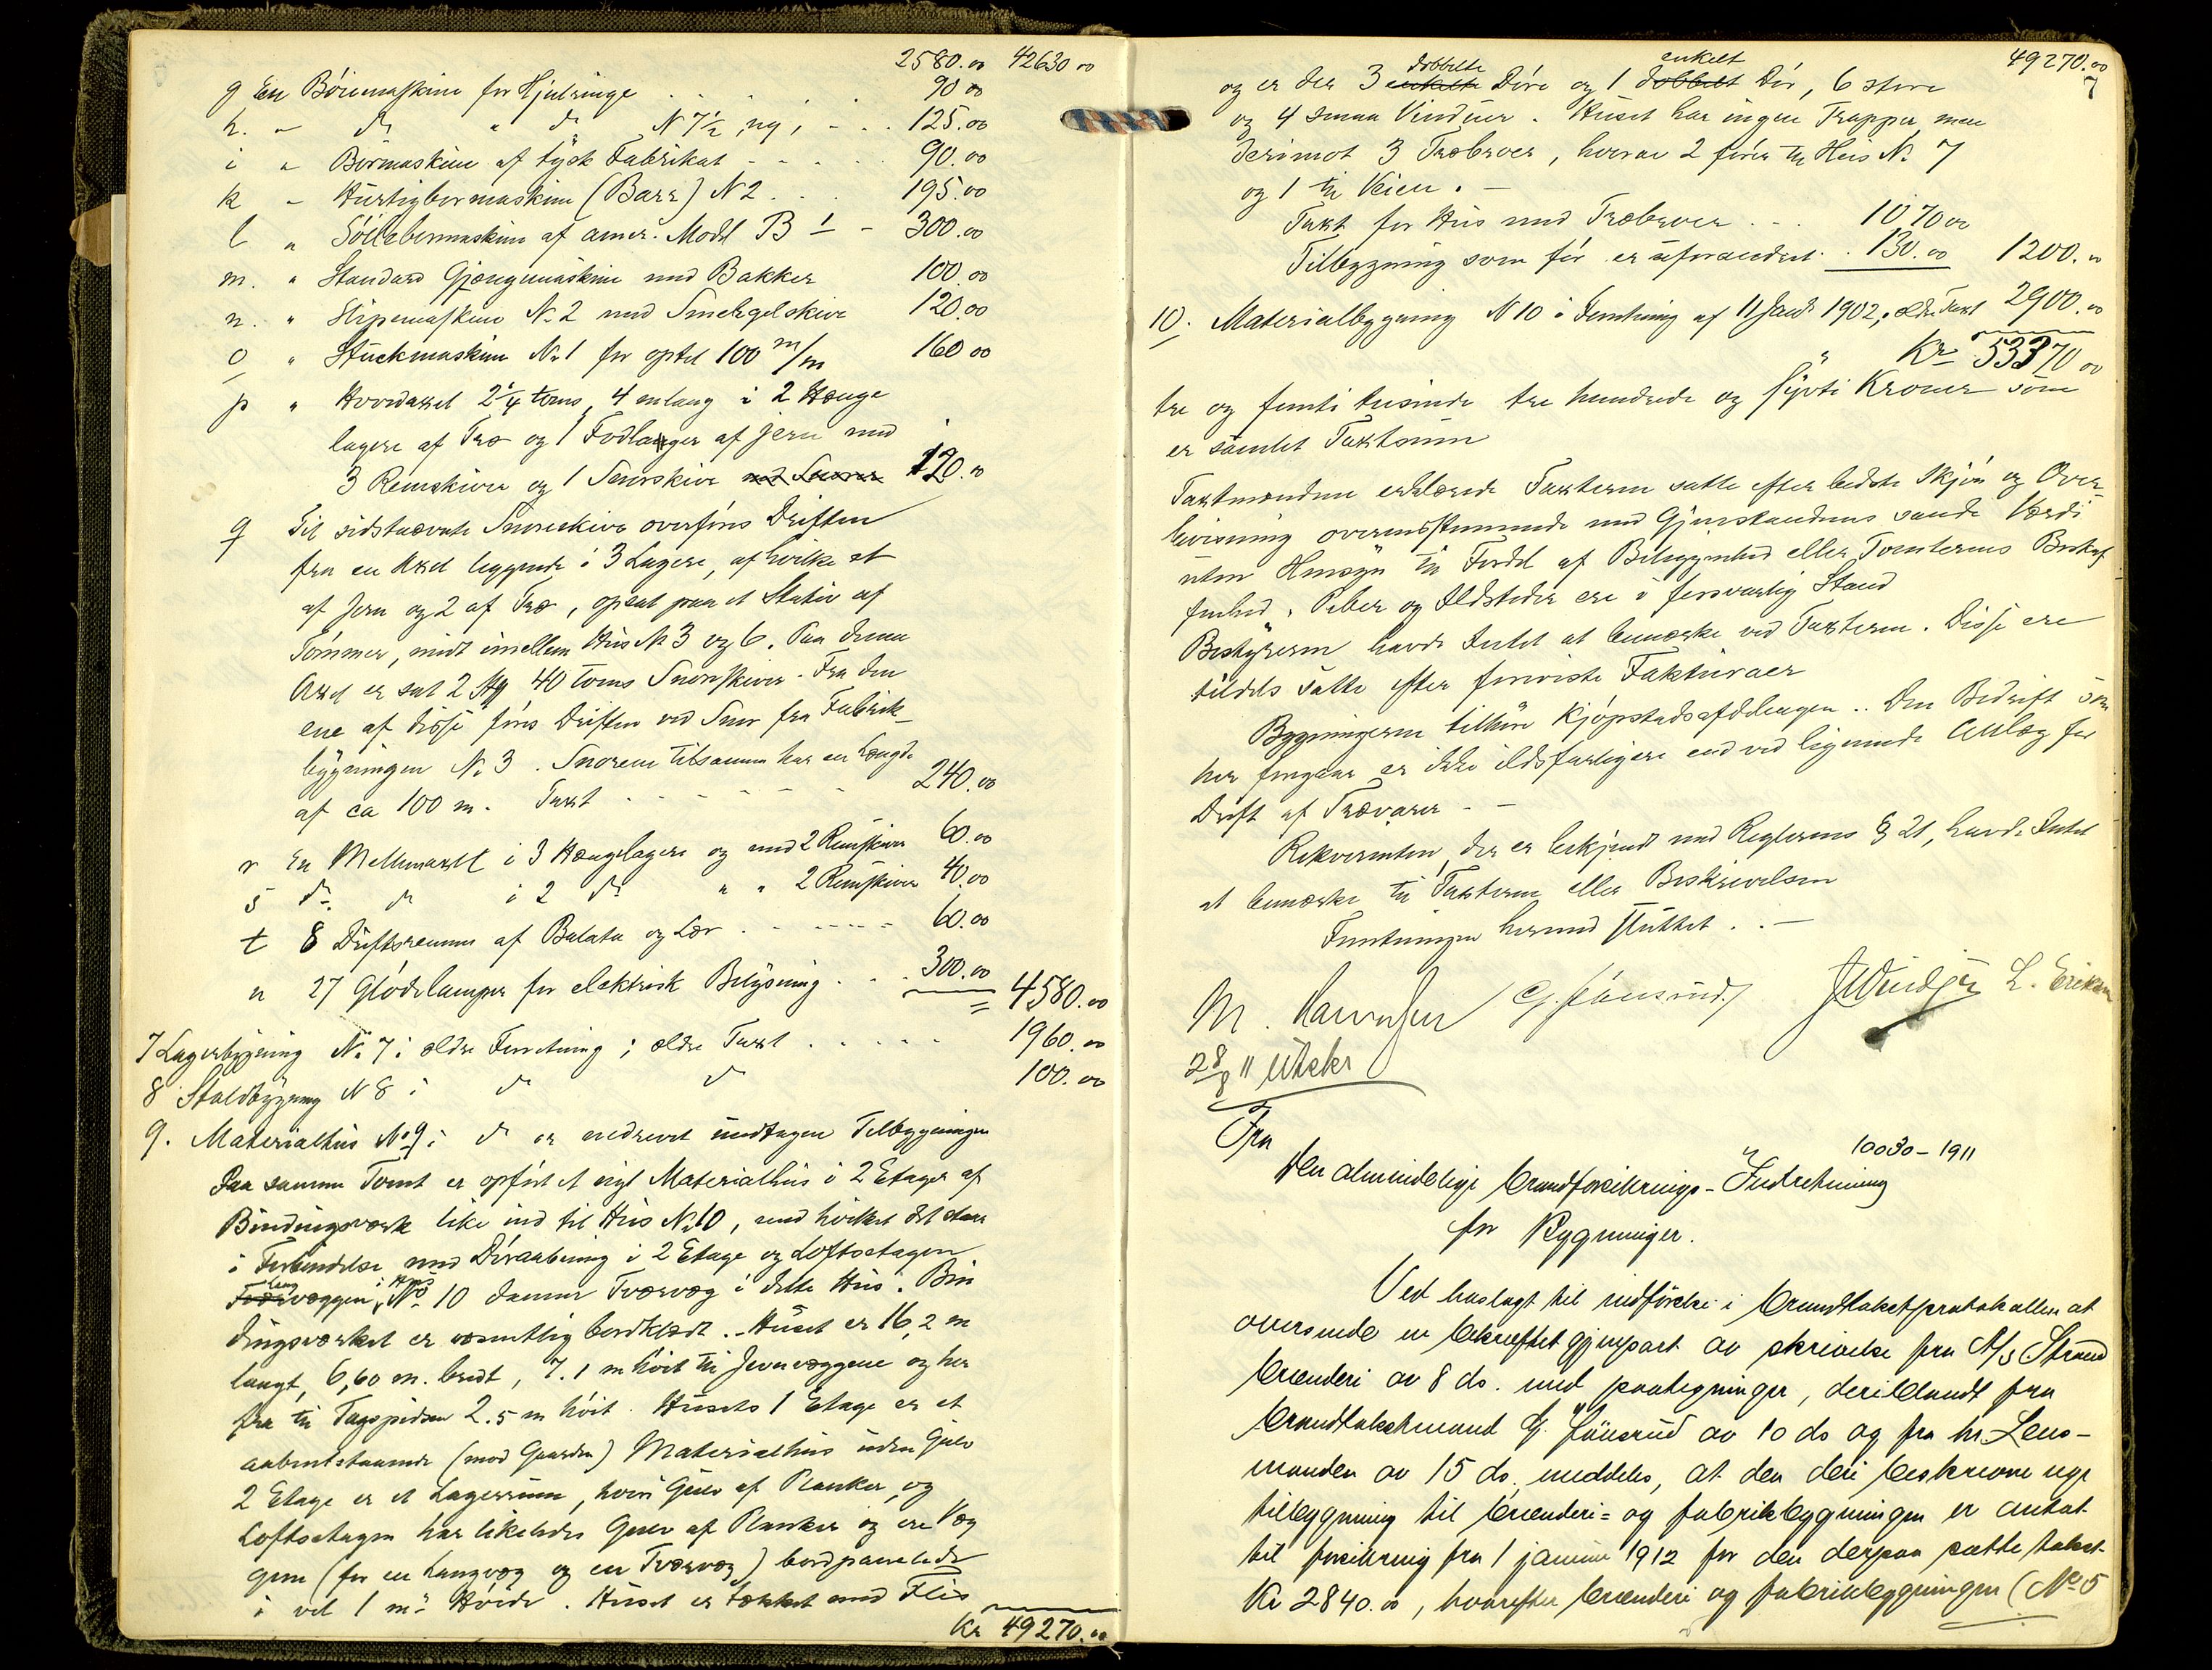 2580.00 42630 00
g En Böiemaskine for Hjulringe . . . . . 90 00
h. - do " do N 7½, ny, - . . 125.00
i " Bormaskine af tysk Fabrikat - - - . . 90.00
k - Hurtigbormaskine (Barr) N 2 . . . 195.00
l " Söileboremaskine af amer. Modl B 1 - 300.00
m. " Standard Gjængemaskine med Bakker 100.00
n. " Slipemaskine No 2 med Smergelskive 120.00
o " Stuckmaskine No 1 for optil 100 m/m 160 00
p " Hovedaxel 2¼ toms, 4 m lang i 2 Hænge
lagere af Træ og 1 Fodlager af Jern med
3 Remskiver og 1 Snorskive med Snorer 120.00
q Til sidstnævnte Snoreskive overføres Driften
fra en Axel liggende i 3 Lagere, af hvilke et
af Jern og 2 af Træ, opsat paa et Stativ af
Tömmer, midt imellem Hus No 3 og 6. Paa denne
Axel er sat 2 Stk 40 toms Snorskiver. Fra den
ene af disse föres Driften ved Snor fra Fabrik-
bygningen No 3. Snorene tilsammen har en Længde
af ca 100 m. Taxt . - - - - - 240.00
r En Mellemaxel i 3 Hængelagere og med 2 Remskiver 60.00
s do. do i 2 do " " 2 Remskiver 40.00
t 8 Driftsremme af Balata og Lær . - - - - - 60.00
u 27 Glödelamper for elektrisk Belysning . . . 300.00
= 4580.00
7 Lagerbygning No 7 i ældre Forretning; ældre Taxt . . . . . 1960.00
8 Staldbygning N 8 i do do 100.00
9. Materialhus No 9 i do er nedrevet undtagen Tilbygningen
Paa samme Tomt er opfört et nyt Materialhus i 2 Etager af
Bindingsværk like ind til Hus No 10, med hvilket det staar
i Forbindelse med Döraabning i 2 Etage og Loftsetagen
Tvær Langvæggen i Hus No 10 danner Tværvæg i dette Hus. Bin
dingsværket er væsentlig bordklædt. Huset er 16,2 m
langt, 6,60 m. bredt, 7.1 m höit til Jevnvæggene og her
fra til Tagspidsen 2.5 m höit. Husets 1 Etage er et
aabentstaaende (mod Gaarden) Materialhus uden Gulv
2 Etage er et Lagerrum, hvori Gulv af Planker, og
Loftsetagen har likeledes Gulv af Planker og ere Væg
gene (for en Langvæg og en Tværvæg) bordpanelede
i vel 1 m's Höide. Huset er tækket med Flis
Kr 49270.00
49270.00
7
og er der 3 enkelte dobbelte Döre og 1 dobbelt enkelt Dör, 6 store
og 4 smaa Vinduer. Huset har ingen Trapper, men
derimot 3 Træbroer, hvorav 2 förer til Hus No 7
og 1 til Veien. -
Taxt for Hus med Træbroer . . . 1070 00
Tilbygning som för er uforandret . . 130.00 1200.00
10. Materialbygning N 10 i Forretning af 11 Janr 1902, ældre Taxt 2900.00
Kr 53370 00
tre og femti tusinde tre hundrede og syvti Kroner som
er samlet Taxtsum
Taxtmændene erklærede Taxterne satte efter bedste Skjön og Over-
bevisning overensstemmende med Gjenstandens sande Værdi
uten Hensyn til Fordel af Beliggenhed eller Tomternes Beskaf
fenhed. Piber og Ildsteder ere i forsvarlig Stand
Bestyreren havde Intet at bemærke ved Taxterne. Disse ere
tildels satte efter foreviste Fakturaer
Bygningerne tilhöre Kjöpstadsafdelingen.. Den Bedrift som
her foregaar er ikke ildsfarligere end ved lignende Anlæg for
Drift af Trævarer - -
Rekvirenten, der er bekjendt med Reglernes § 21, havde Intet
at bemærke til Taxterne eller Beskrivelsen
Forretningen hermed sluttet . . -
G. Jönsrud. L. Eriksen
28/8 11 Utskr
10030 - 1911
Fra
Den almindelige Brandforsikrings-Indretning
for Bygninger.
Ved hoslagt til indförelse i brandtakstprotokollen at
oversende en bekræftet gjenpart av skrivelse fra A/s Strand
brænderi av 8 ds. med paategninger, deriblandt fra
brandtakstmand G. Jönsrud av 10 ds og fra hr. Lens-
manden av 15 ds. meddeles, at den deri beskrevne nye
tilbygning til brænderi= og fabrikbygningen er antat
til forsikring fra 1 januar 1912 for den derpaa satte takst
Kr 2840.00, hvorefter brænderi og fabrikbygningen (No 5